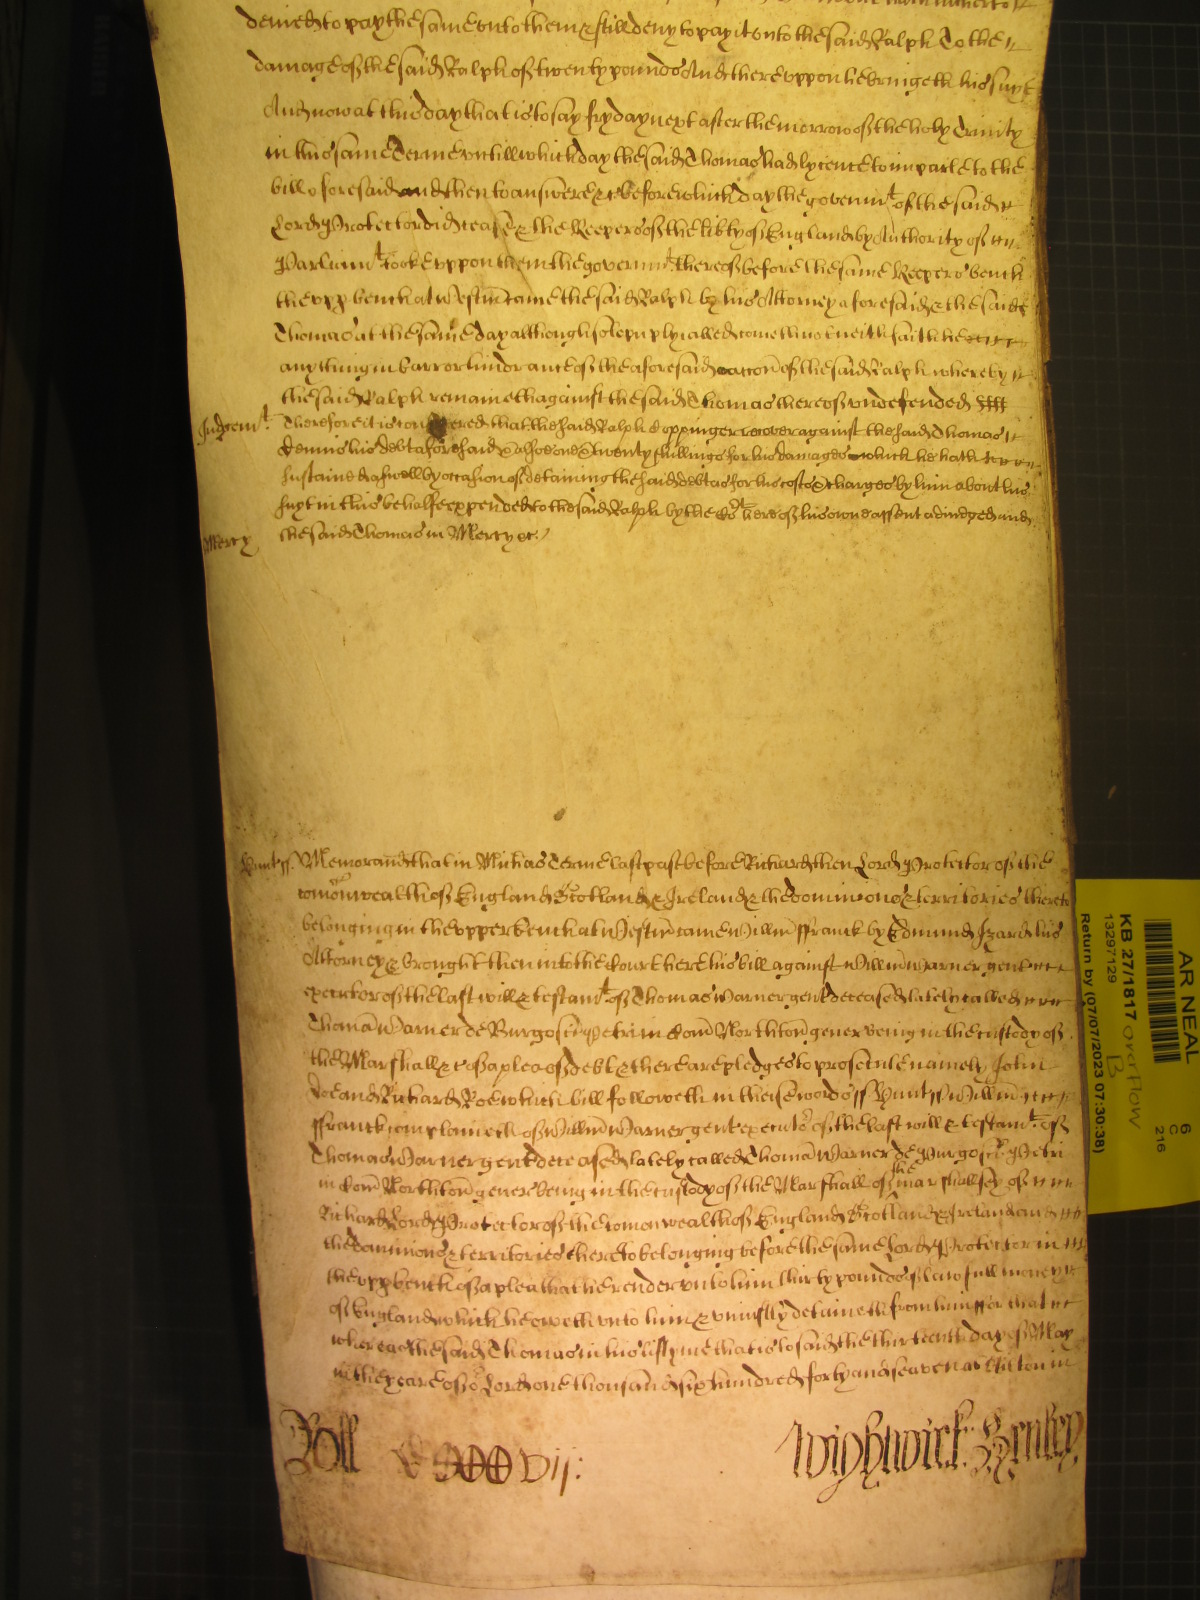 denied to pay the same unto them & still deny to pay it unto the said Ralph To the
damage of the said Ralph of twenty pounds And thereuppon he bringeth his suyt
And now at this day that is to say fryday next after the morrow of the holy Trinity
in this same Terme untill which day the said Thomas had lycence to imparle to the
bill aforesaid and then to answere &c before which day the governmt of the said
Lord Protector did cease & the Keepers of the libty of England by Authority of
Parliamt tooke uppon them the governmt thereof before the same Keepers bench
the upp bench at Westm came the said Ralph by his Attorney aforesaid & the said
Thomas at the same day although solempnly called cometh not neith saith he
any thing in barr or hindrance of the aforesaid accon of the said Ralph whereby
the said Ralph remaineth against the said Thomas thereof undefended
Judgemt Therefore it is considered that the said Ralph Coppinger recover against the said Thomas
Dennis his debt aforesaid & alsoe one & twenty shillings for his damages which he hath
sustained aswell by occasion of detaining the said debt as for his costs & charges by him about his
suyt in this behalfe expended to the said Ralph by the Cort here of his owne assent adiudged and
Mercy the said Thomas in Mercy &c.
Hunt ss. Memorand that in Michas Terme last past before Richard then Lord Protector of the
comonwealth of England Scotland & Ireland & the dominions & territories thereto
belonging in the upper bench at Westm came Willm ffranck by Edmund Izard his
Attorney & brought then into the Court here his bill against Willm Warner gent
executor of the last will & testamt of Thomas Warner gent deceased lately called
Thoma Warner de Burgo sci Petri in Com Northton gener being in the custody of
the Marshall &c of a plea of debt & there are pledges to prosecute namely John
Doe and Richard Roe which bill followeth in theise words ss Hunt ss Willm
ffranck complaineth of Willm Warner gent executor of the last will & testamt of
Thomas Warner gent deceased lately called Thoma Warner de Burgo sci Petri
in Com Northton gener being in the custody of the Marshall of the marshallsey of
Richard Lord Protector of the comonwealth of England Scotland & Ireland and
the dominions & territories thereto belonging before the same Lord Protector in
the upp bench of a plea that he render unto him thirty pounds of lawfull money
of England which he oweth unto him & uniustly detaineth from him ffor that
whereas the said Thomas in his lifetyme that is to said the thirteenth day of May
in the yeare of or Lord one thousand six hundred forty and seaven at Hilton in
Roll
Wightwick: Henley
AR NEAL
6
C
216
KB 27/1817 overflow
B
13297129
Return by (07/07/2023 07:30:38)